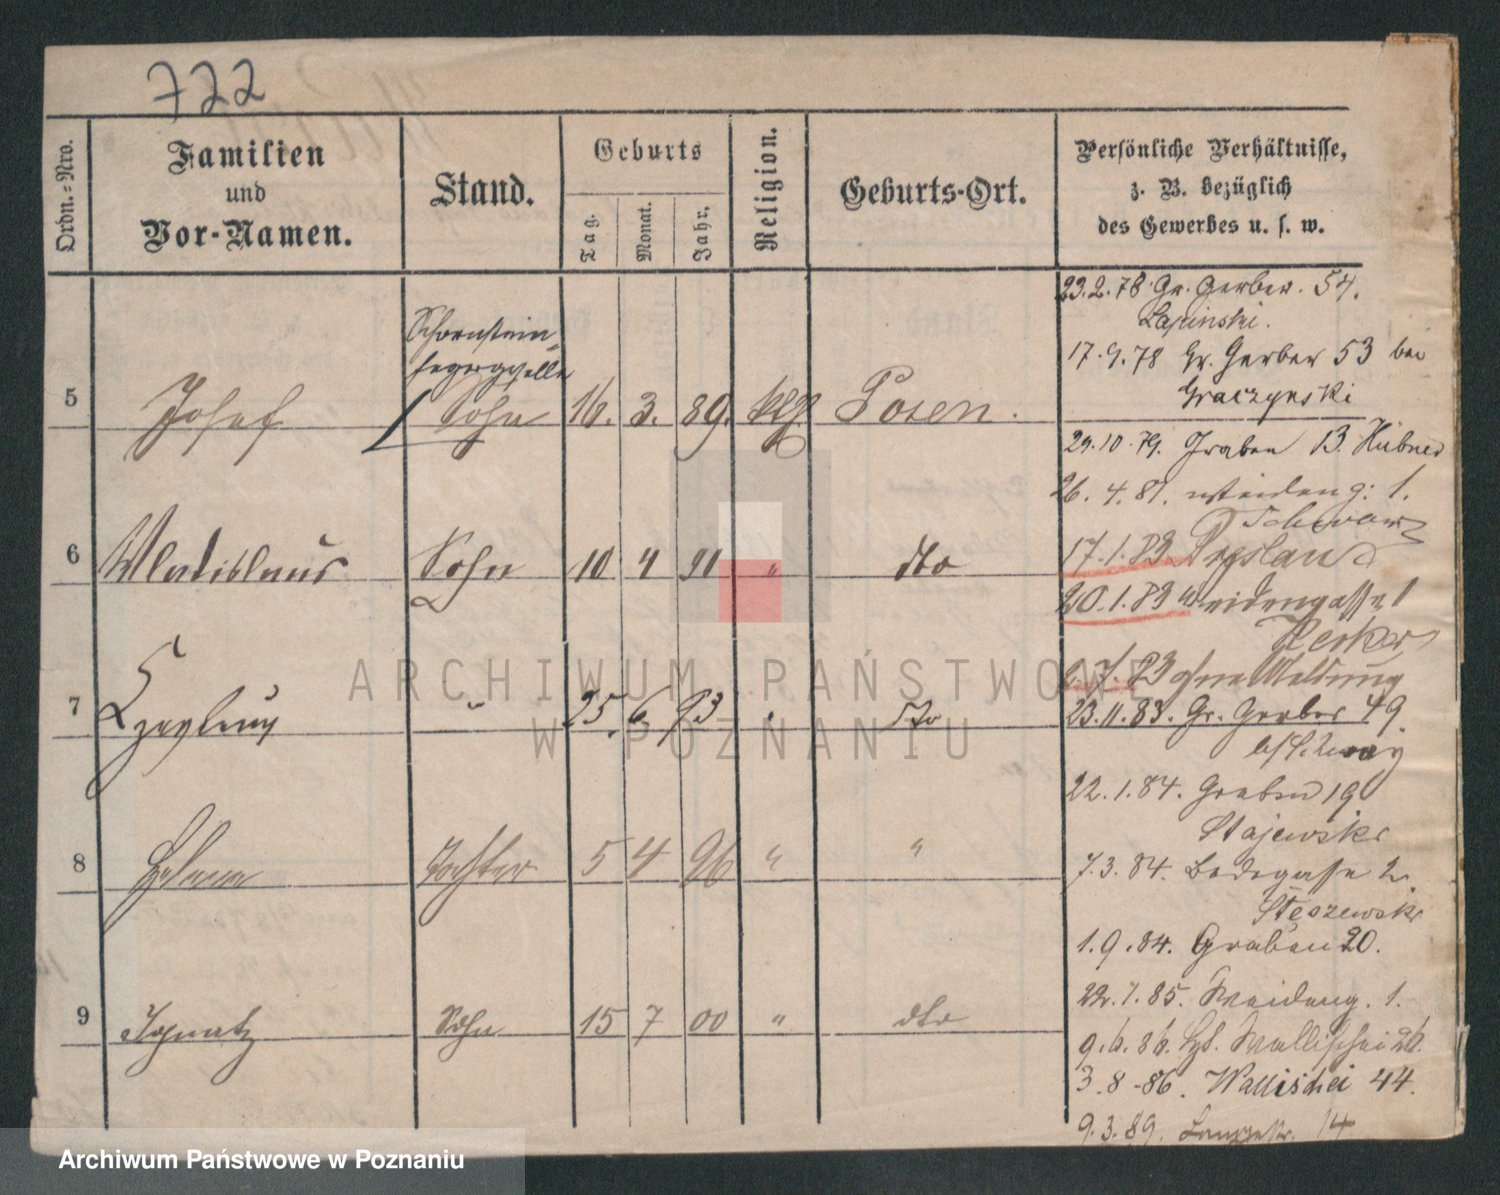 722
Ordn.-Nro.
Familien
und
Vor-Namen.
Stand.
Geburts
Tag.
Monat.
Jahr.
Religion.
Geburts-Ort.
Persönliche Verhältnisse,
z. B. bezüglich
des Gewerbes u. s. w.
Schornstein-
fegergeselle
5 Josef Sohn 16. 3. 89. Posen.
6 Wladislaus Sohn 10 4 91 " dto
7 " 25. 6 93 " dto
8 Helena Tochter 5 4 96 " "
9 Ignatz Sohn 15 7 00 " dto
23.2.78 Gr. Gerber. 54.
Lapinski.
17.9.78 Gr. Gerber 53 bei
Graczynski
29.10.79. Graben 13. Hübner
26.4.81. Weideng: 1.
17.1.83 Breslau
20.1.83 Weidengasse 1
6.7.83 ohne Meldung
23.11.83. Gr. Gerber 49
22.1.84. Graben 19
Stajewski
7.3.84. Badegasse 2.
Steszewski
1.9.84. Graben 20.
22.7.85. Weideng. 1.
9.6.86. Wallischei 26.
3.8.86. Wallischei 44.
9.3.89. Langestr. 14
ARCHIWUM PAŃSTWOWE
W POZNANIU
Archiwum Państwowe w Poznaniu